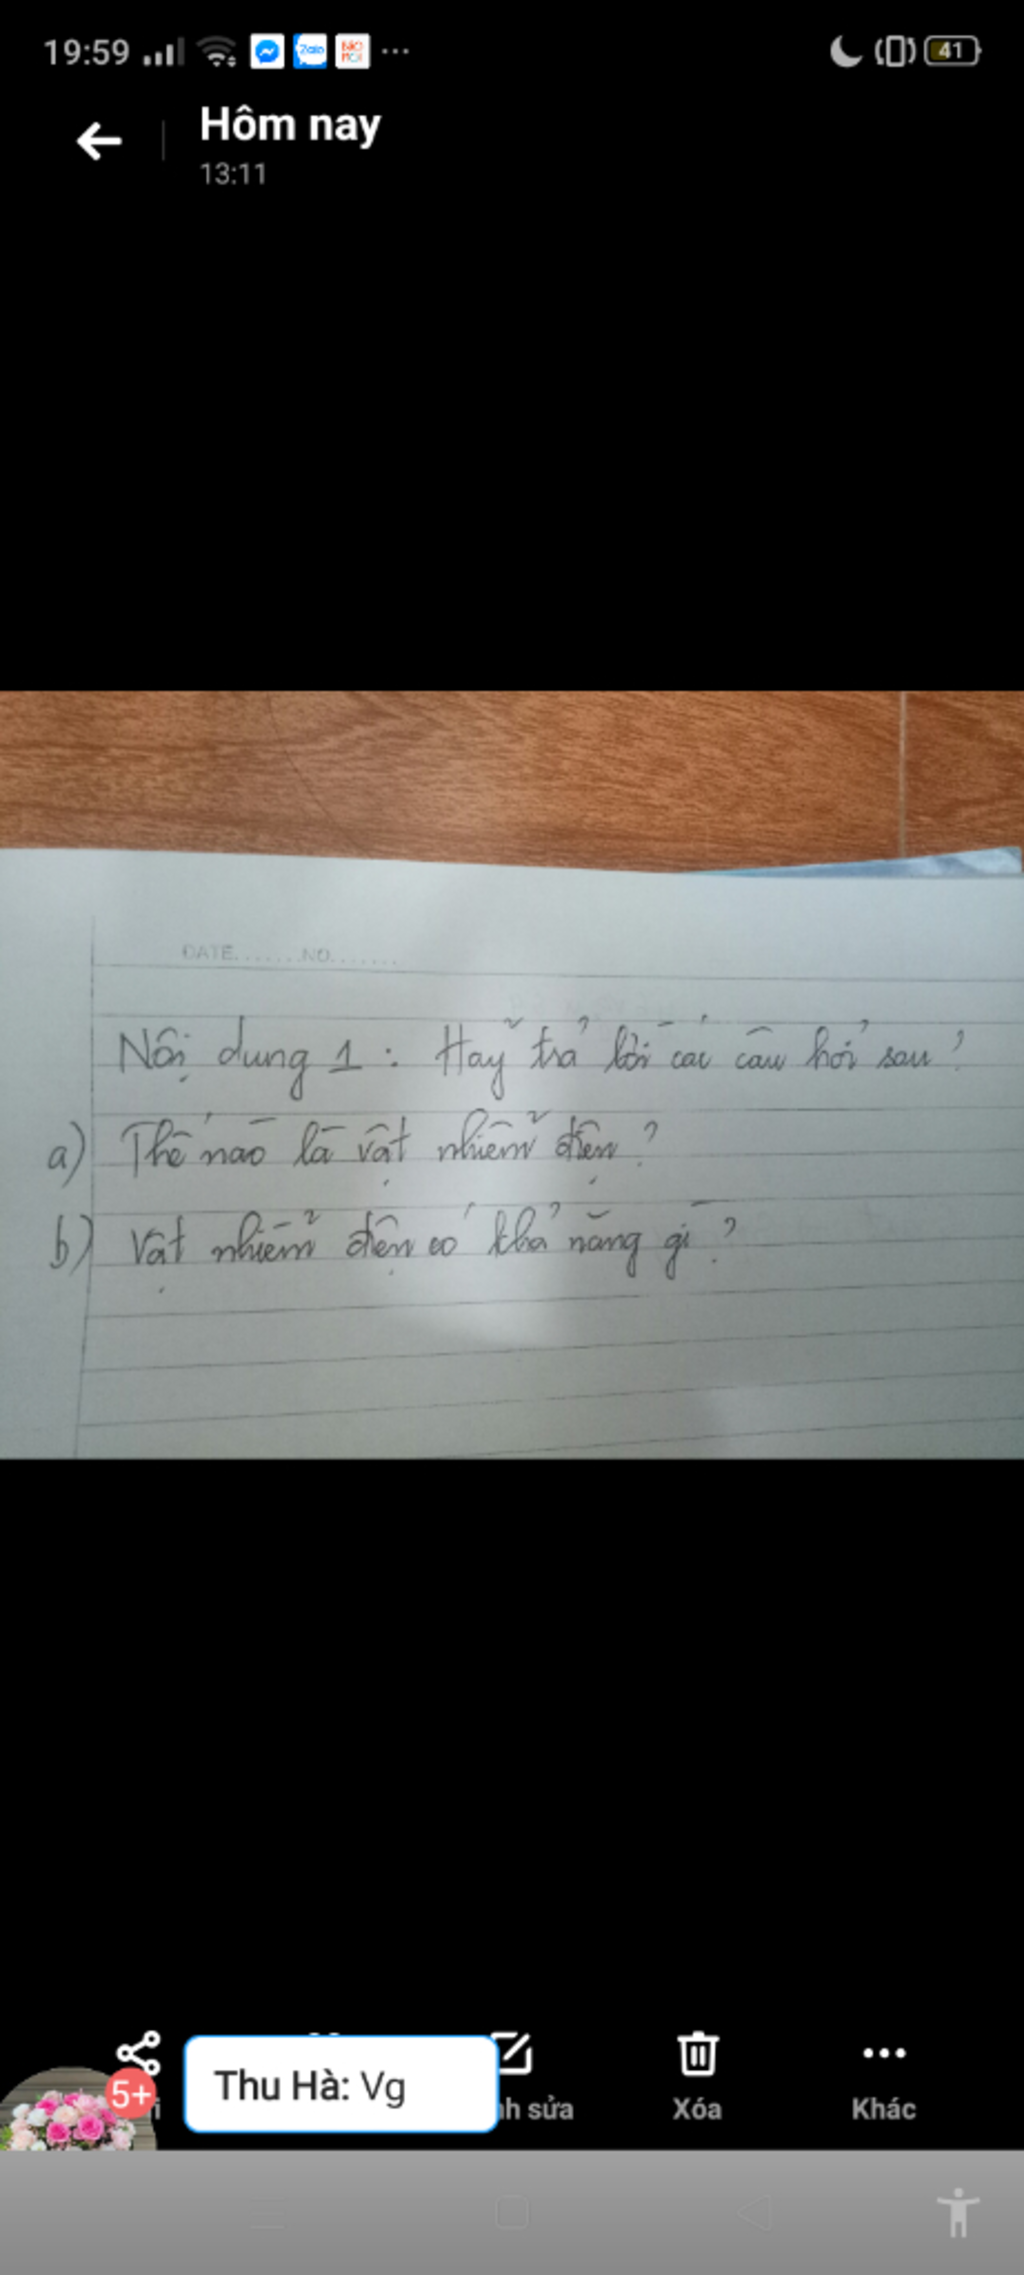 19:59 Zalo BÁO MỚI ... 41
Hôm nay
13:11
DATE.......NO.......
Nội dung 1 : Hãy trả lời các câu hỏi sau?
a) Thế nào là vật nhiễm điện ?
b) Vật nhiễm điện có khả năng gì ?
5+
Thu Hà: Vg
nh sửa
Xóa
Khác